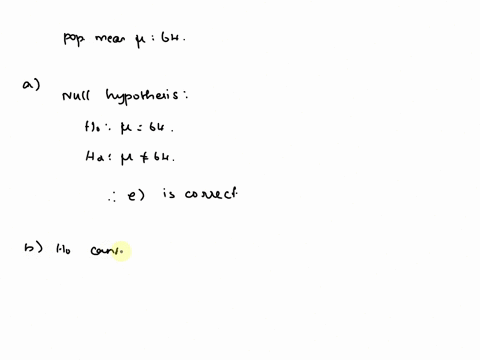 pop mean μ : 64.
a)
Null hypothesis:
H₀: μ = 64.
Ha: μ ≠ 64.
∴ e) is correct
b) H₀ can